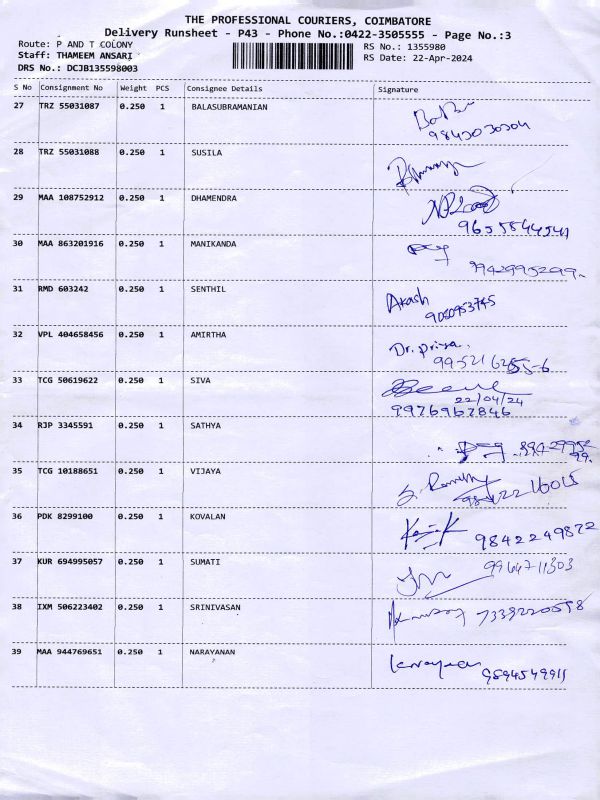 THE PROFESSIONAL COURIERS, COIMBATORE
Delivery Runsheet - P43 - Phone No.:0422-3505555 - Page No.:3
Route: P AND T COLONY
RS No.: 1355980
Staff: THAMEEM ANSARI
RS Date: 22-Apr-2024
DRS No.: DCJB135598003
S No Consignment No Weight PCS Consignee Details Signature
27 TRZ 55031087 0.250 1 BALASUBRAMANIAN
9843030304
28 TRZ 55031088 0.250 1 SUSILA
29 MAA 108752912 0.250 1 DHAMENDRA
9655844541
30 MAA 863201916 0.250 1 MANIKANDA
9942995299.
31 RMD 603242 0.250 1 SENTHIL
Akash
32 VPL 404658456 0.250 1 AMIRTHA
Dr. priya.
33 TCG 50619622 0.250 1 SIVA
22/04/24
9976967846
34 RJP 3345591 0.250 1 SATHYA
35 TCG 10188651 0.250 1 VIJAYA
36 PDK 8299100 0.250 1 KOVALAN
9842249872
37 KUR 694995057 0.250 1 SUMATI
9964711303
38 IXM 506223402 0.250 1 SRINIVASAN
7339220598
39 MAA 944769651 0.250 1 NARAYANAN
9894549911